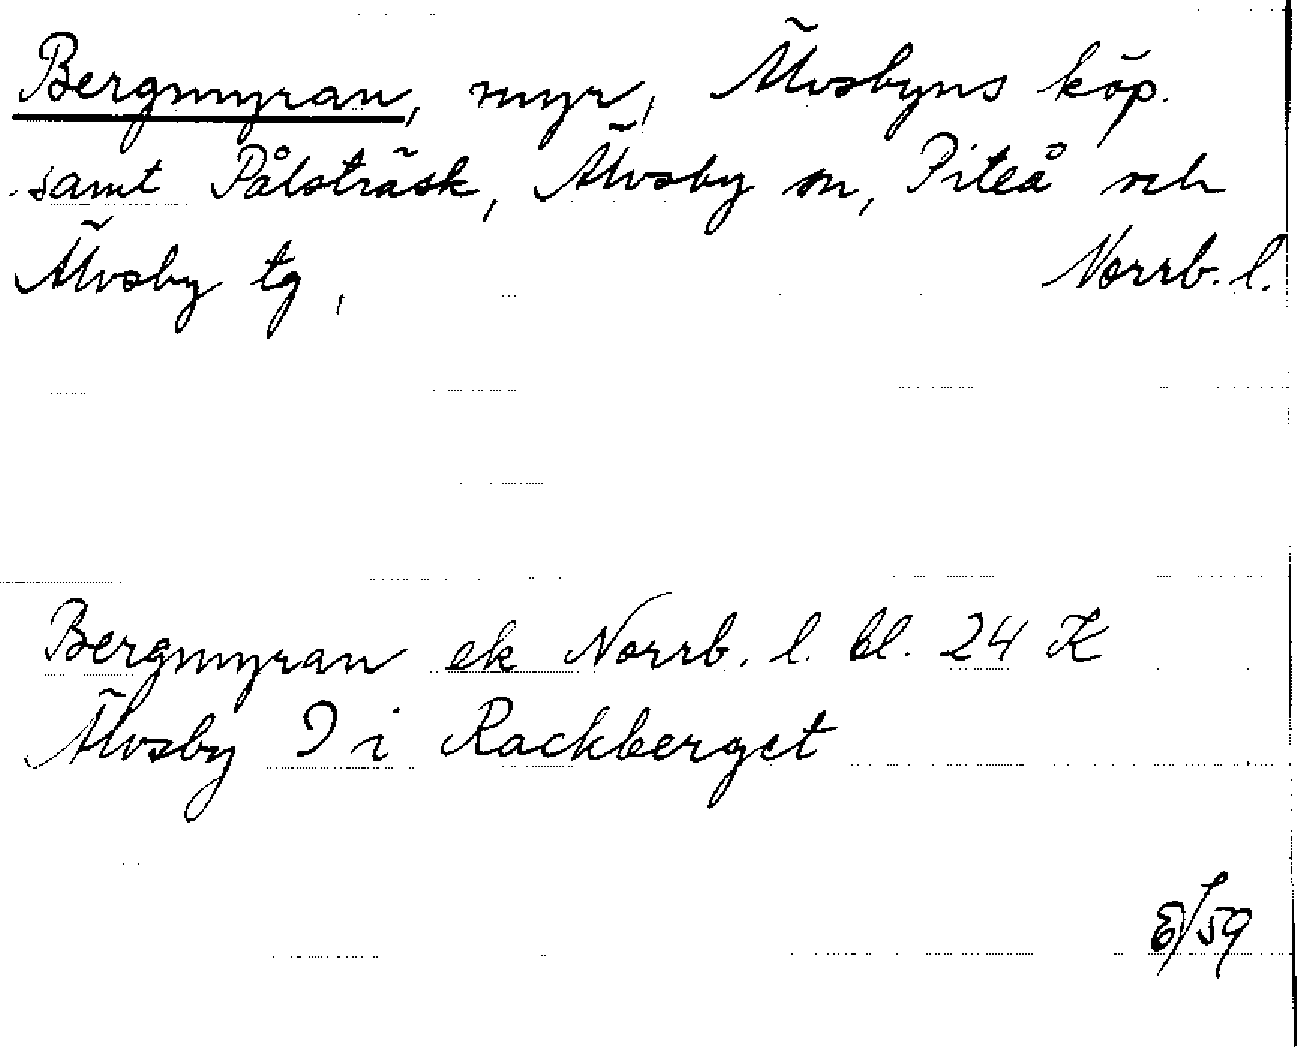 Bergmyran, myr, Älvsbyns köp.
samt Pålsträsk, Älvsby sn, Piteå och
Älvsby tg, Norrb. l.
Bergmyran ek Norrb. l. bl. 24 K
Älvsby I i Rackberget
/59